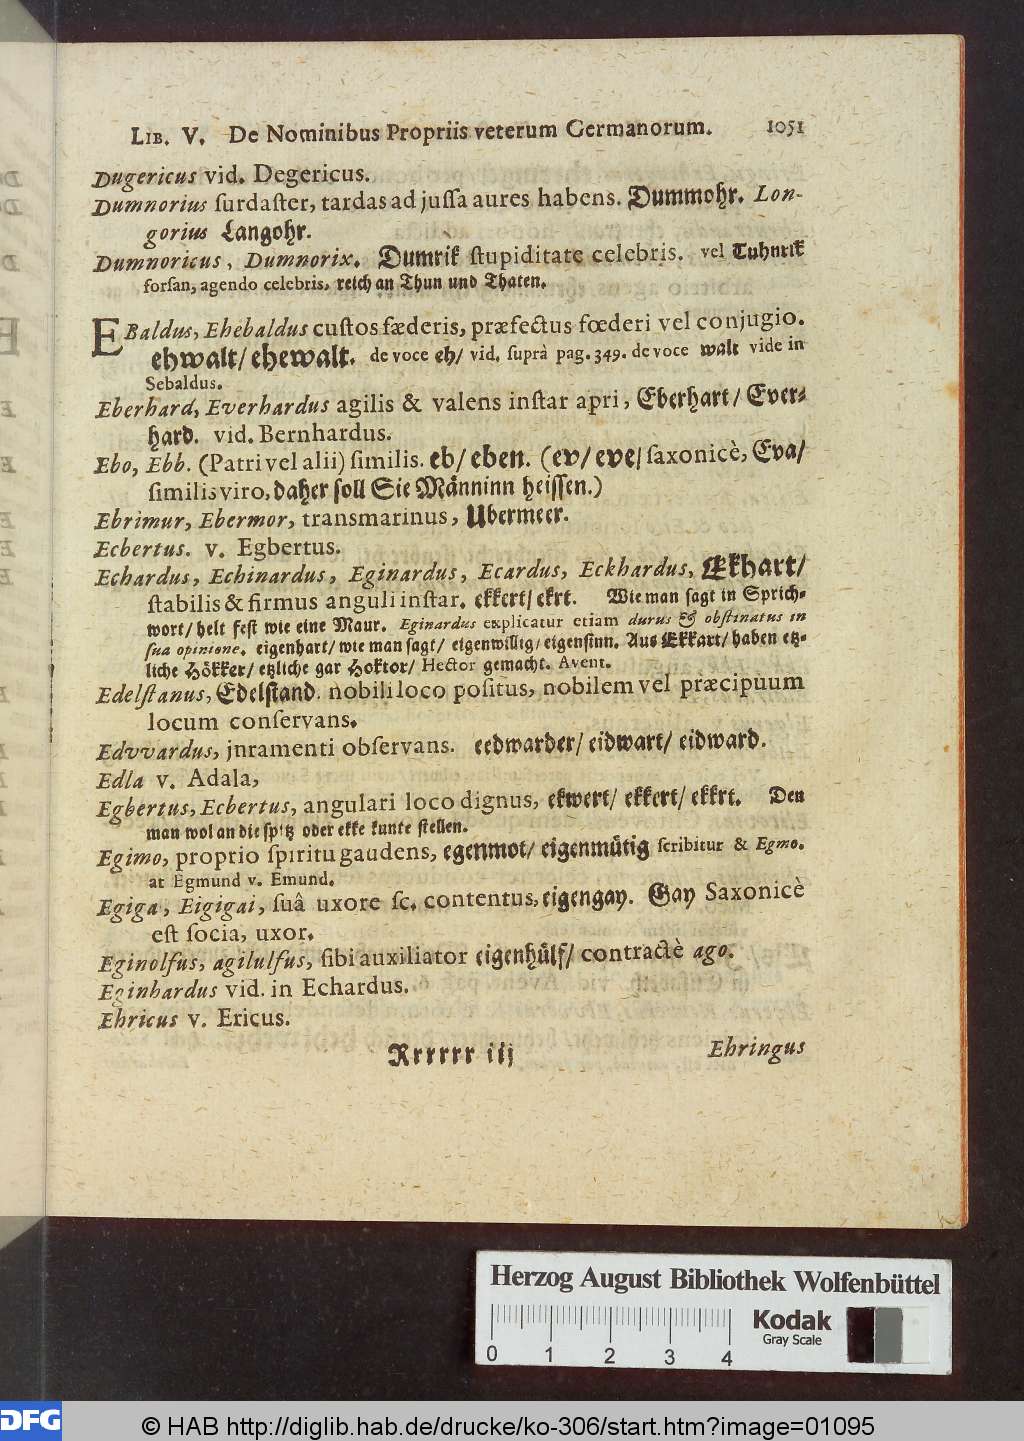 LIB. V. De Nominibus Propriis veterum Germanorum. 1051
Dugericus vid. Degericus.
Dumnorius surdaster, tardas ad jussa aures habens. Dummohr. Lon-
gorius Langohr.
Dumnoricus, Dumnorix. Dumrik stupiditate celebris. vel Tuhnrik
forsan, agendo celebris, reich an Thun und Thaten.
EBaldus, Ehebaldus custos fæderis, præfectus fœderi vel conjugio.
ehwalt/ ehewalt. de voce eh/ vid. suprà pag. 349. de voce walt vide in
Sebaldus.
Eberhard, Everhardus agilis & valens instar apri, Eberhart/ Ever-
hard. vid. Bernhardus.
Ebo, Ebb. (Patri vel alii) similis. eb/ eben. (ev/ eve/ saxonicè, Eva/
similis viro, daher soll Sie Männinn heissen.)
Ebrimur, Ebermor, transmarinus, Ubermeer.
Ecbertus. v. Egbertus.
Echardus, Echinardus, Eginardus, Ecardus, Eckhardus, Ekhart/
stabilis & firmus anguli instar. ekkert/ ekrt. Wie man sagt in Sprich-
wort/ helt fest wie eine Maur. Eginardus explicatur etiam durus & obstinatus in
sua opinione. eigenhart/ wie man sagt/ eigenwillig/ eigensinn. Aus Ekkart/ haben etz-
liche Hökker/ etzliche gar Hoktor/ Hector gemacht. Avent.
Edelstanus, Edelstand. nobili loco positus, nobilem vel præcipuum
locum conservans.
Edvvardus, juramenti observans. eedwarder/ eidwart/ eidward.
Edla v. Adala,
Egbertus, Ecbertus, angulari loco dignus, ekwert/ ekkert/ ekkrt. Den
man wol an die spitz oder ekke kunte stellen.
Egimo, proprio spiritu gaudens, egenmot/ eigenmütig scribitur & Egmo.
at Egmund v. Emund.
Egiga, Eigigai, suâ uxore sc. contentus, eigengay. Gay Saxonicè
est socia, uxor.
Eginolfus, agilulfus, sibi auxiliator eigenhülf/ contractè ago.
Eginhardus vid. in Echardus.
Ehricus v. Ericus.
Rrrrrr iij Ehringus
Herzog August Bibliothek Wolfenbüttel
Kodak
Gray Scale
0 1 2 3 4
DFG © HAB http://diglib.hab.de/drucke/ko-306/start.htm?image=01095